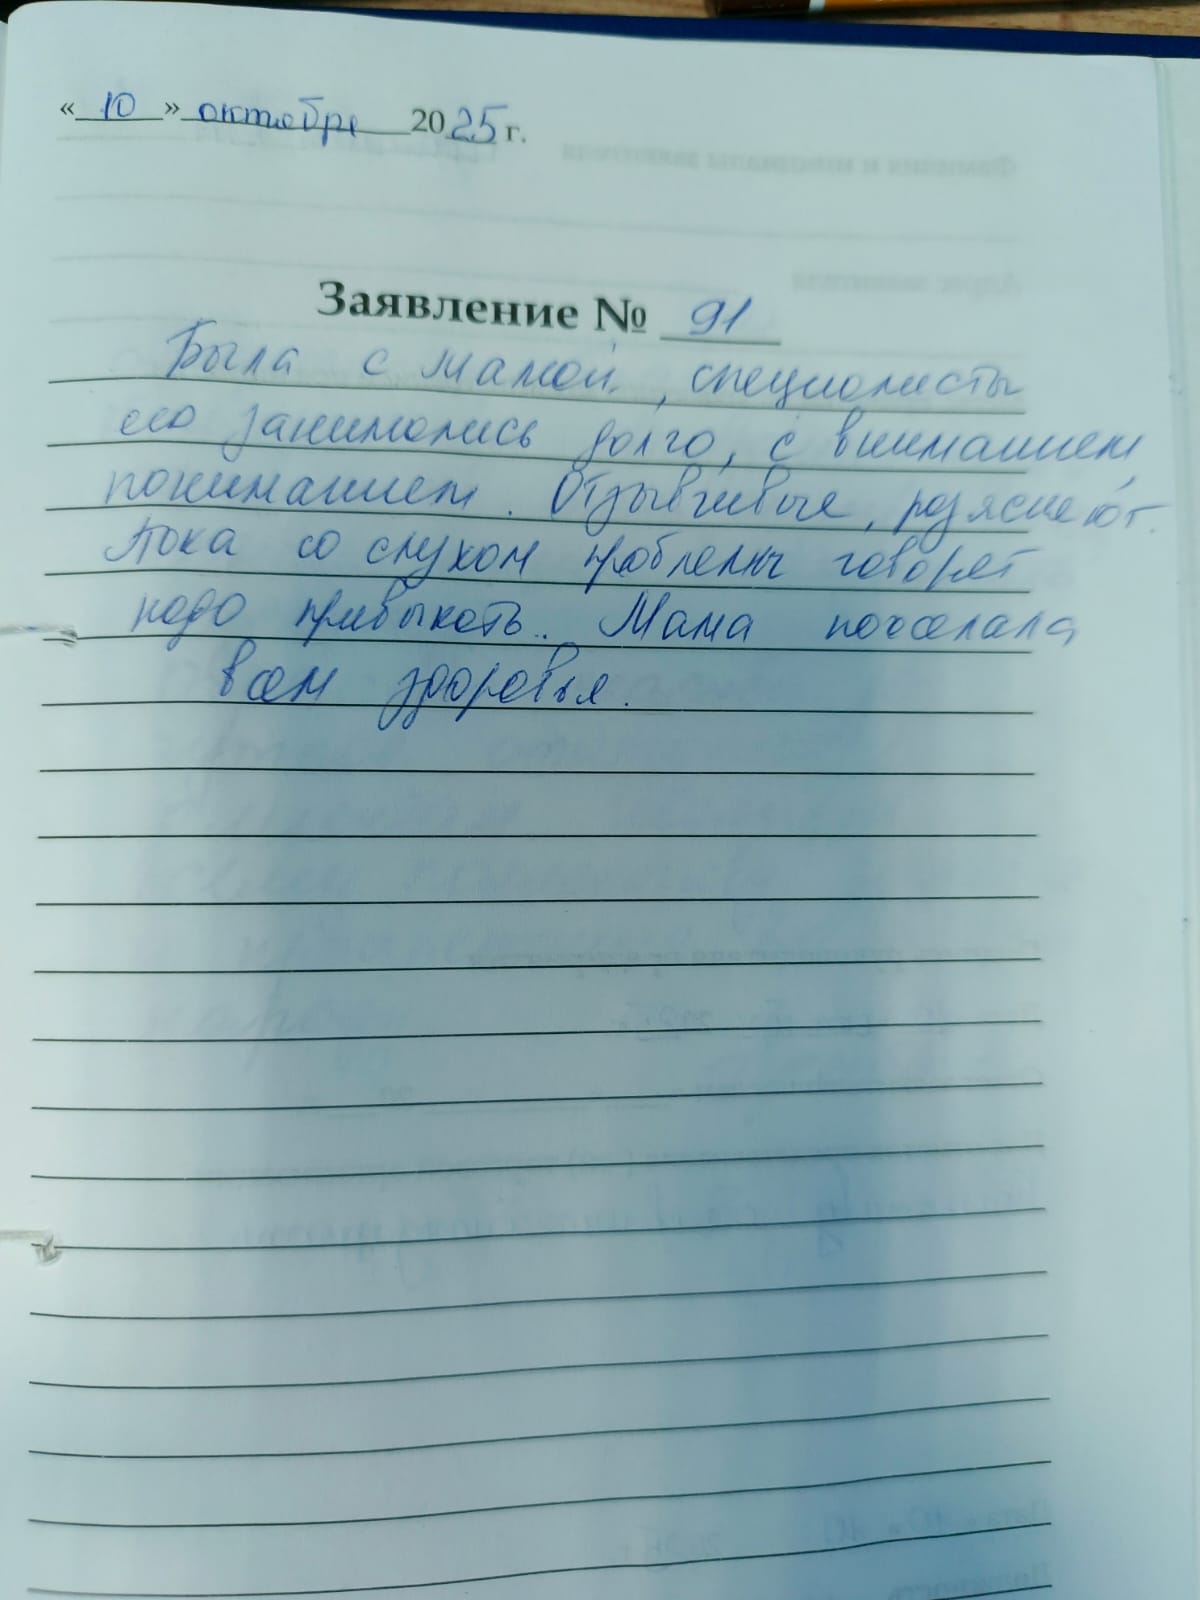 « 10 » октября 2025 г.
Заявление № 91
Была с мамой, специалисты
ею занимались долго, с вниманием
пониманием. Отзывчивые, разясняют.
Пока со слухом проблемы говорят
надо привыкать. Мама пожелала
вам здоровья.